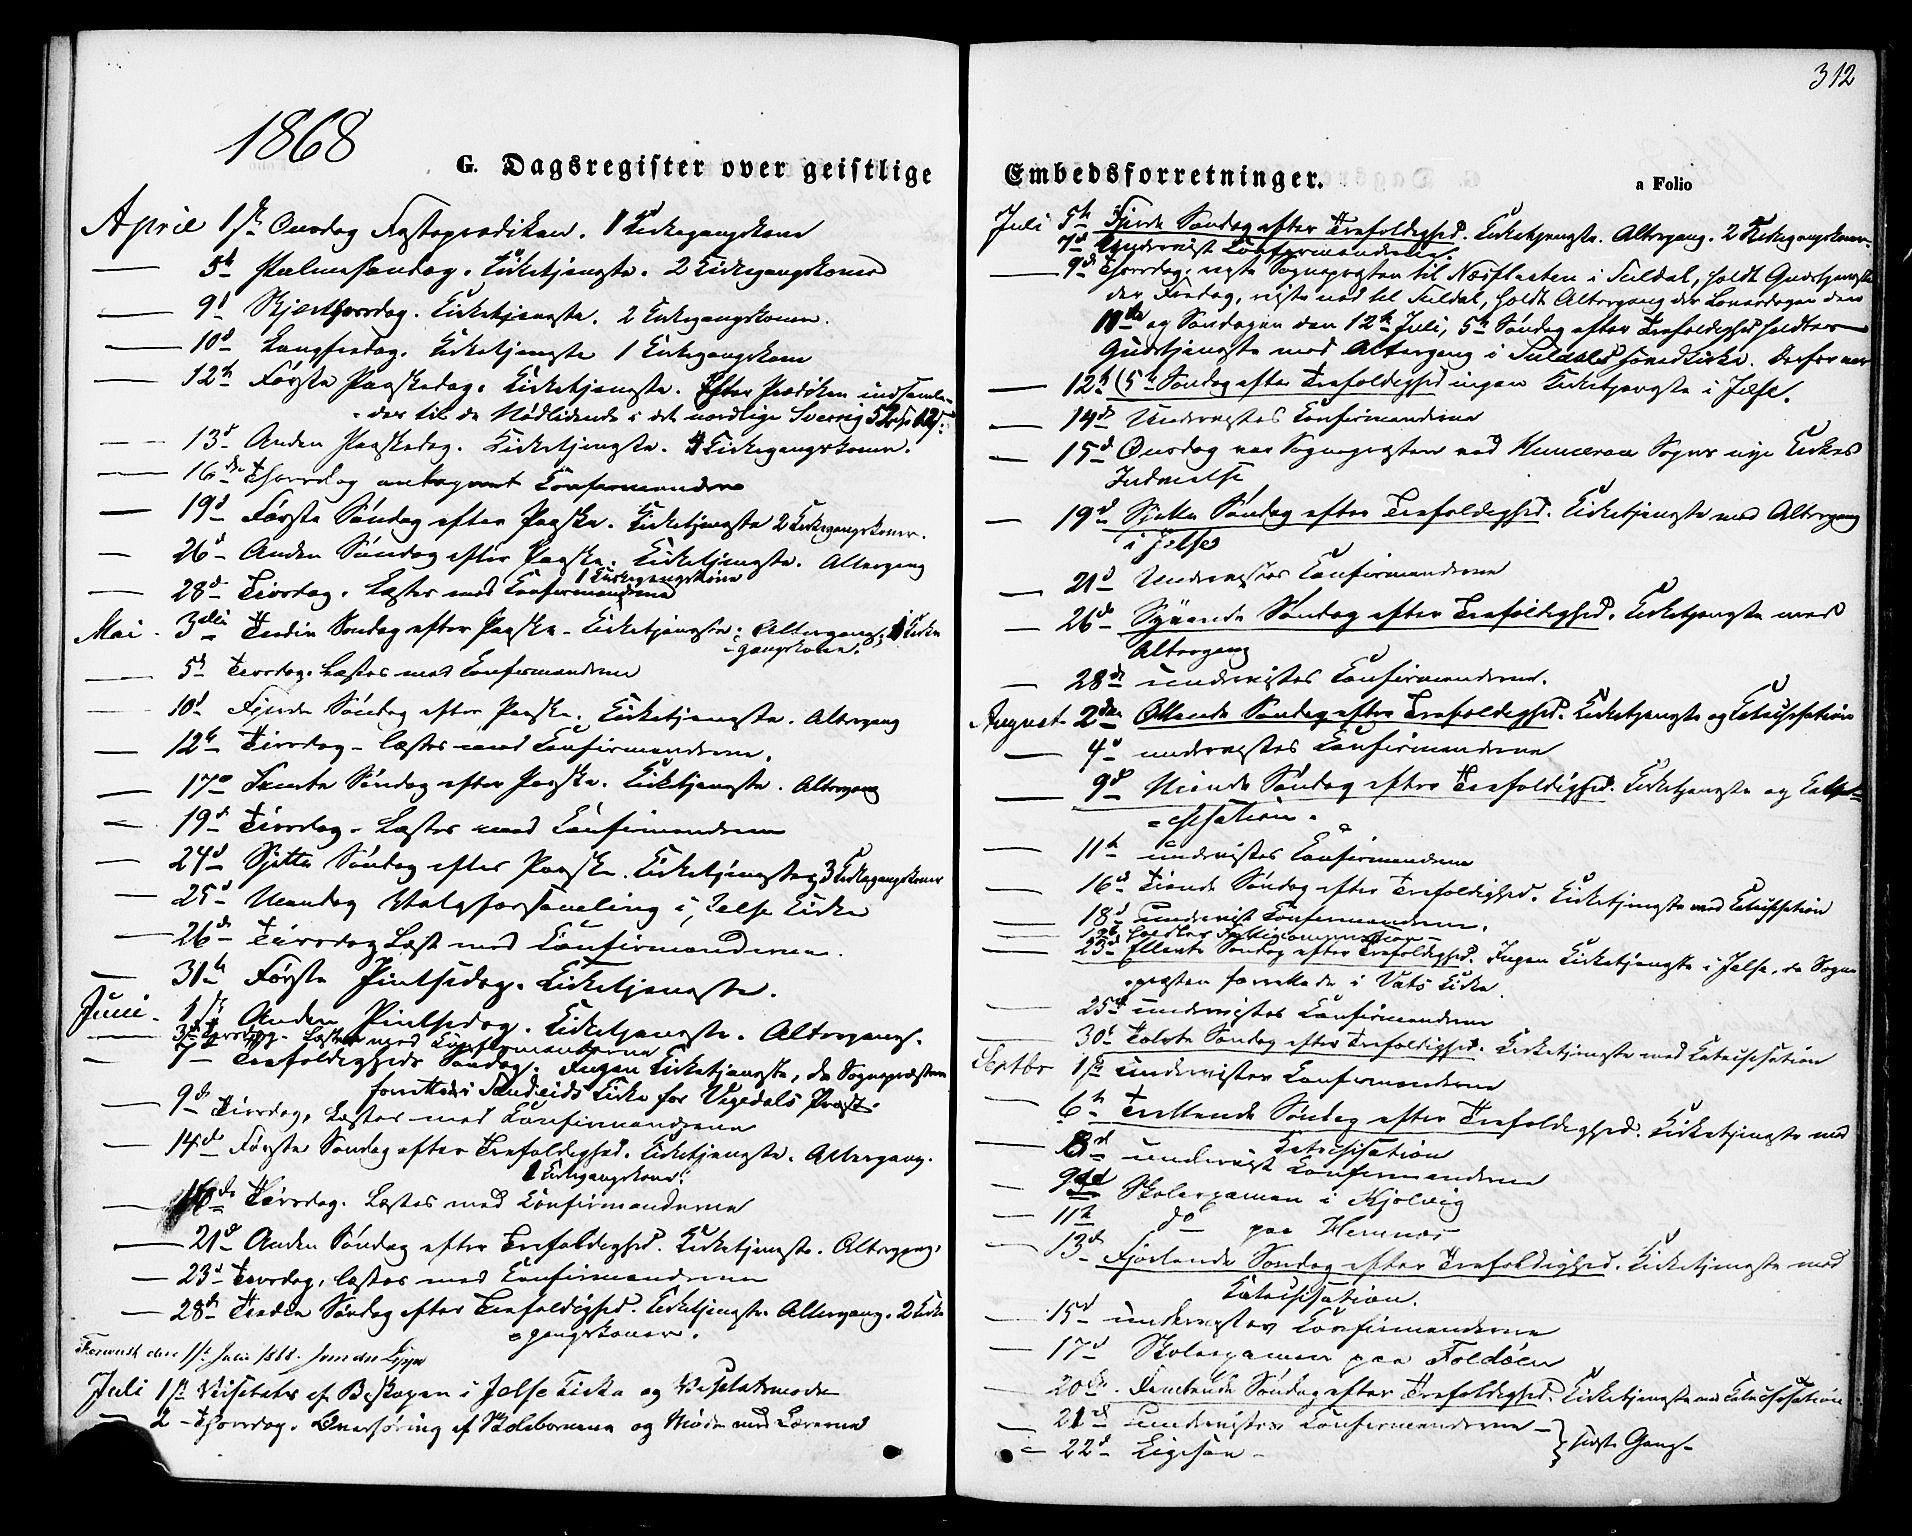 312
1868
G. Dagsregister over geistlige
Embedsforretninger.
a Folio
April 1ste Onsdag Fasteprædiken. 1 Kirkegangskone
— 5te Palmesøndag. Kirketjeneste. 2 Kirkegangskoner
— 9de Skjærthorsdag. Kirketjeneste. 2 Kirkegangskoner.
— 10de Langfredag. Kirketjeneste 1 Kirkegangskone
— 12te Første Paaskedag. Kirketjeneste. Efter Prædiken indsamle-
des til de Nødlidende i det nordlige Sverrig
— 13de Anden Paaskedag. Kirketjeneste. 4 Kirkegangskoner.
— 16de Thorsdag antegnet Confirmanderne
— 19de Første Søndag efter Paaske. Kirketjeneste 2 Kirkegangskoner.
— 26de Anden Søndag efter Paaske. Kirketjeneste. Altergang
1 Kirkegangskone
— 28de Tirsdag. Læstes med Confirmanderne
Mai - 3die Tredie Søndag efter Paaske - Kirketjeneste. Altergang. 1 Kirke
-gangskone.
— 5te Tirsdag. Læstes med Confirmanderne
— 10de Fjerde Søndag efter Paaske. Kirketjeneste. Altergang
— 12te Tirsdag - læstes med Confirmanderne.
— 17de Femte Søndag efter Paaske. Kirketjeneste. Altergang
— 19de Tirsdag - Læstes med Confirmanderne
— 24de Sjette Søndag efter Paaske. Kirketjeneste, 3 Kirkegangskoner
— 25de Mandag Valgforsamling i Jelse Kirke
— 26de Tirsdag Læst med Confirmanderne.
— 31te Første Pintsedag. Kirketjeneste.
Juni - 1ste Anden Pintsedag. Kirketjeneste. Altergang.
— Læstes med Confirmanderne
— 7de Trefoldigheds Søndag. Ingen Kirketjeneste, da Sognepræsten
forrettede i Sandeids Kirke for Vigedals Præst.
— 9de Tirsdag, Læstes med Confirmanderne
— 14de Første Søndag efter Trefoldighed. Kirketjeneste. Altergang.
1 Kirkegangskone.
— 16de Tirsdag. Læstes med Confirmanderne
— 21de Anden Søndag efter Trefoldighed. Kirketjeneste. Altergang.
— 23de Tirsdag, læstes med Confirmanderne
— 28de Tredie Søndag efter Trefoldighed. Kirketjeneste Altergang. 2 Kirke
-gangskoner.
1ste Juli 1868.
Juli 1ste Visitats af Biskopen i Jelse Kirke og Visitatsmøde
— 2 - Thorsdag. Overhøring af Skolebørnene og Møde med Lærerne
Juli 5te Fjerde Søndag efter Trefoldighed. Kirketjeneste. Altergang. 2 Kirkegangskoner.
7de Undervist Confirmanderne.
— 9de Thorsdag, reiste Sognepræsten til Næsflaten i Suldal, holdt Gudstjeneste
der Fredag, reiste ned til Suldal, holdt Altergang der Løverdagen den
11te og Søndagen den 12te Juli, 5te Søndag efter Trefoldighed holdtes
Gudstjeneste med Altergang i Suldals Hovedkirke. Derfor var
— 12te (5te Søndag efter Trefoldighed ingen Kirketjeneste i Jelse.
— 14de Undervistes Confirmanderne
— 15de Onsdag var Sognepræsten ved Sogns nye Kirkes
Indvielse
— 19de Sjette Søndag efter Trefoldighed. Kirketjeneste med Altergang
i Jelse
— 21de Undervistes Confirmanderne
— 26de Syvende Søndag efter Trefoldighed. Kirketjeneste med
Altergang
— 28de undervistes Confirmanderne.
August 2den Ottende Søndag efter Trefoldighed. Kirketjeneste og Catechisation
— 4de undervistes Confirmanderne
— 9de Niende Søndag efter Trefoldighed. Kirketjeneste og Cate-
-chisation.
— 11te undervistes Confirmanderne
— 16de Tiende Søndag efter Trefoldighed. Kirketjeneste med Catechisation
— 18de undervist Confirmanderne.
— holdtes Fattigcommission -
— 23de Ellevte Søndag efter Trefoldighed. Ingen Kirketjeneste i Jelse, da Sogne-
præsten forrettede i Vats Kirke
— 25de undervistes Confirmanderne
— 30te Tolvte Søndag efter Trefoldighed. Kirketjeneste med Catechisation
Septbr 1ste undervistes Confirmanderne
— 6te Trettende Søndag efter Trefoldighed. Kirketjeneste med
Catechisation
— 8de undervist Confirmanderne
— 9de Skoleexamen i Kjølvig
— 11te do paa Hemnæs
— 13de Fjortende Søndag efter Trefoldighed. Kirketjeneste med
Catechisation.
— 15de undervistes Confirmanderne
— 17de Skoleexamen paa Foldøen
— 20de Femtende Søndag efter Trefoldighed. Kirketjeneste med Catechisation
— 21de undervistes Confirmanderne - } sidste Gang -
— 22de Ligesaa -